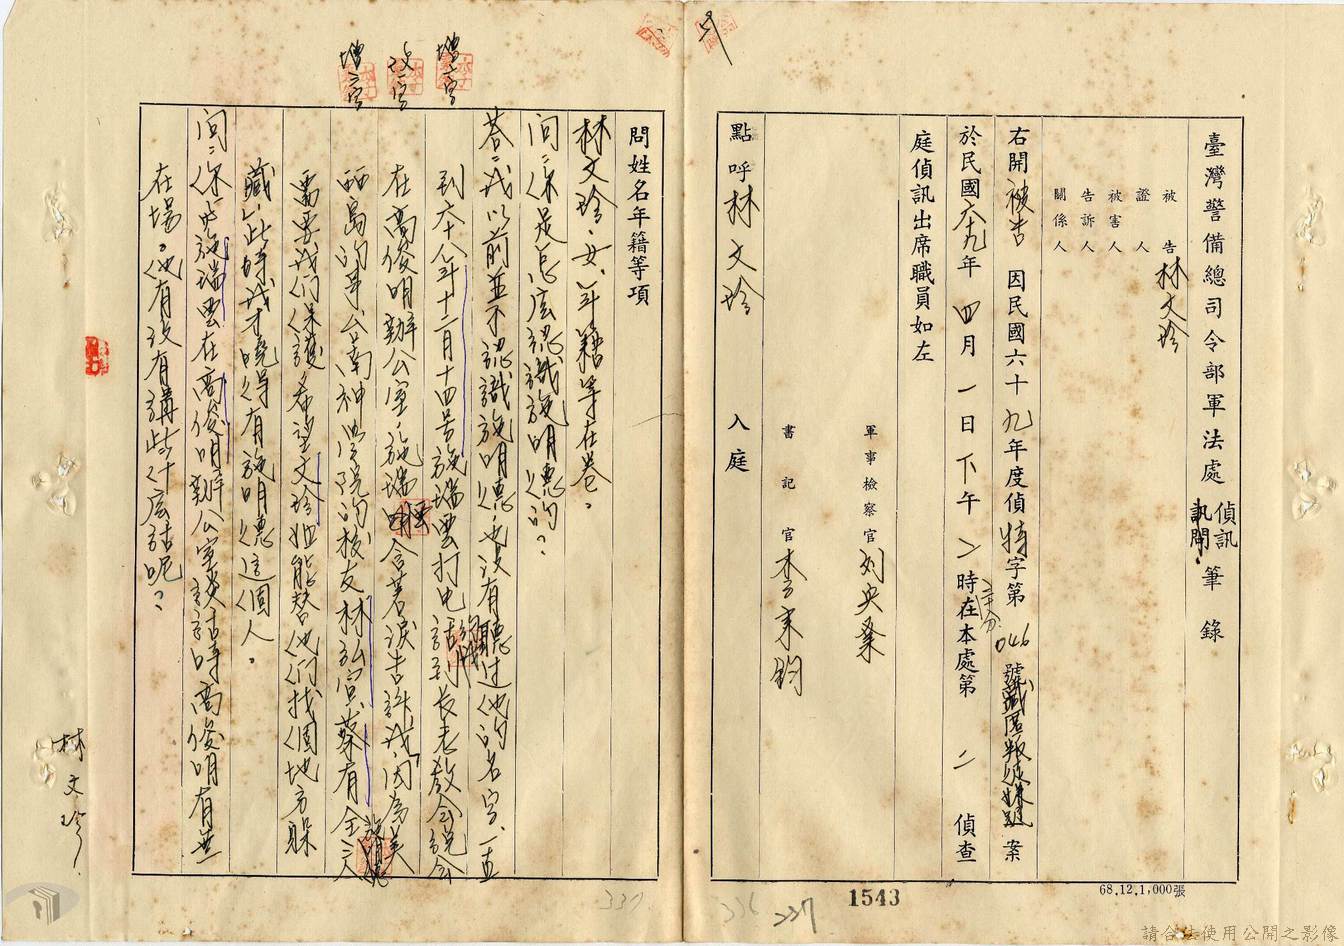 臺灣警備總司令部軍法處偵訊筆錄
訊問
被告 林文珍
證人
被害人
告訴人
關係人
右開被告因民國六十九年度偵特字第046號藏匿叛徒嫌疑案
於民國六十九年四月一日下午二時三十分在本處第二偵查
庭偵訊出席職員如左
軍事檢察官
書記官
點呼林文珍 入庭
問姓名年籍等項
林文珍、女、年籍等在卷。
問:你是怎麼認識施明德的?
答:我以前並不認識施明德,也沒有聽過他的名字,一直
到六十八年十二月十四号施瑞雲打电話到長老教会說会
在高俊明辦公室,施瑞雲含著淚告訴我,因為美
丽島的事,台南神学院的校友林弘宣、蔡有全、施明德三人
需要我们保護,希望文珍姐能替他们找個地方躲
藏,此時我才曉得有施明德這個人。
問:你和施瑞雲在高俊明辦公室談話時高俊明有無
在場?他有没有講些什麼話呢?
增一字
改一字
增三字
林文珍
1543
337
336
337
68.12.1,000張
請合法使用公開之影像